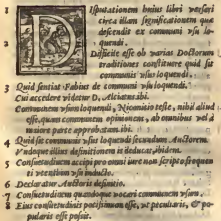 1 DIsputationem huius libri versari
circa illam significationem quæ
descendit ex communi vsu lo-
quendi.
2 Difficile esse ob varias Doctorum
traditiones constituere quid sit
communis vsus loquendi.
3 Quid sentiat Fabius de communi vsu loquendi.
Cui accedere videtur D. Alciatus ibi.
Communem vsum loquendi, Nicomitio teste, nihil aliud
esse, quàm communem opinionem, ab omnibus vel à
maiore parte approbatam ibi.
4 Quid sit communis vsus loquendi secundum Auctorem.
Vndeque illius definitionem is deducat, ibidem.
5 Consuetudinem accipi pro omni iure non scripto frequen
ti vtentium vsu inducto.
6 Declaratur Auctoris definitio.
7 Consuetudinem quandoque vocari communem vsum.
8 Eius consuetudinis potissimum esse, vt peculiaris, & po-
pularis esse possit.